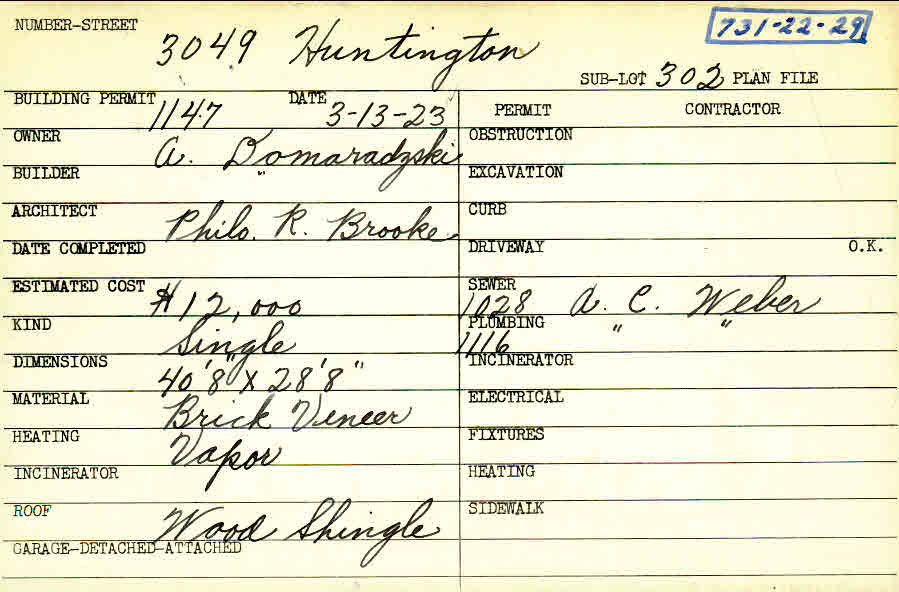 NUMBER-STREET 3049 Huntington 731-22-29
SUB-LOT 302 PLAN FILE
BUILDING PERMIT 1147 DATE 3-13-23 PERMIT CONTRACTOR
OWNER A. Domaradzski OBSTRUCTION
BUILDER " EXCAVATION
ARCHITECT Philo. R. Brooke CURB
DATE COMPLETED DRIVEWAY O.K.
ESTIMATED COST $12,000 SEWER 1028 A. C. Weber
KIND Single PLUMBING 1116 " "
DIMENSIONS 40'8" X 28'8" INCINERATOR
MATERIAL Brick Veneer ELECTRICAL
HEATING Vapor FIXTURES
INCINERATOR HEATING
ROOF Wood Shingle SIDEWALK
GARAGE-DETACHED-ATTACHED